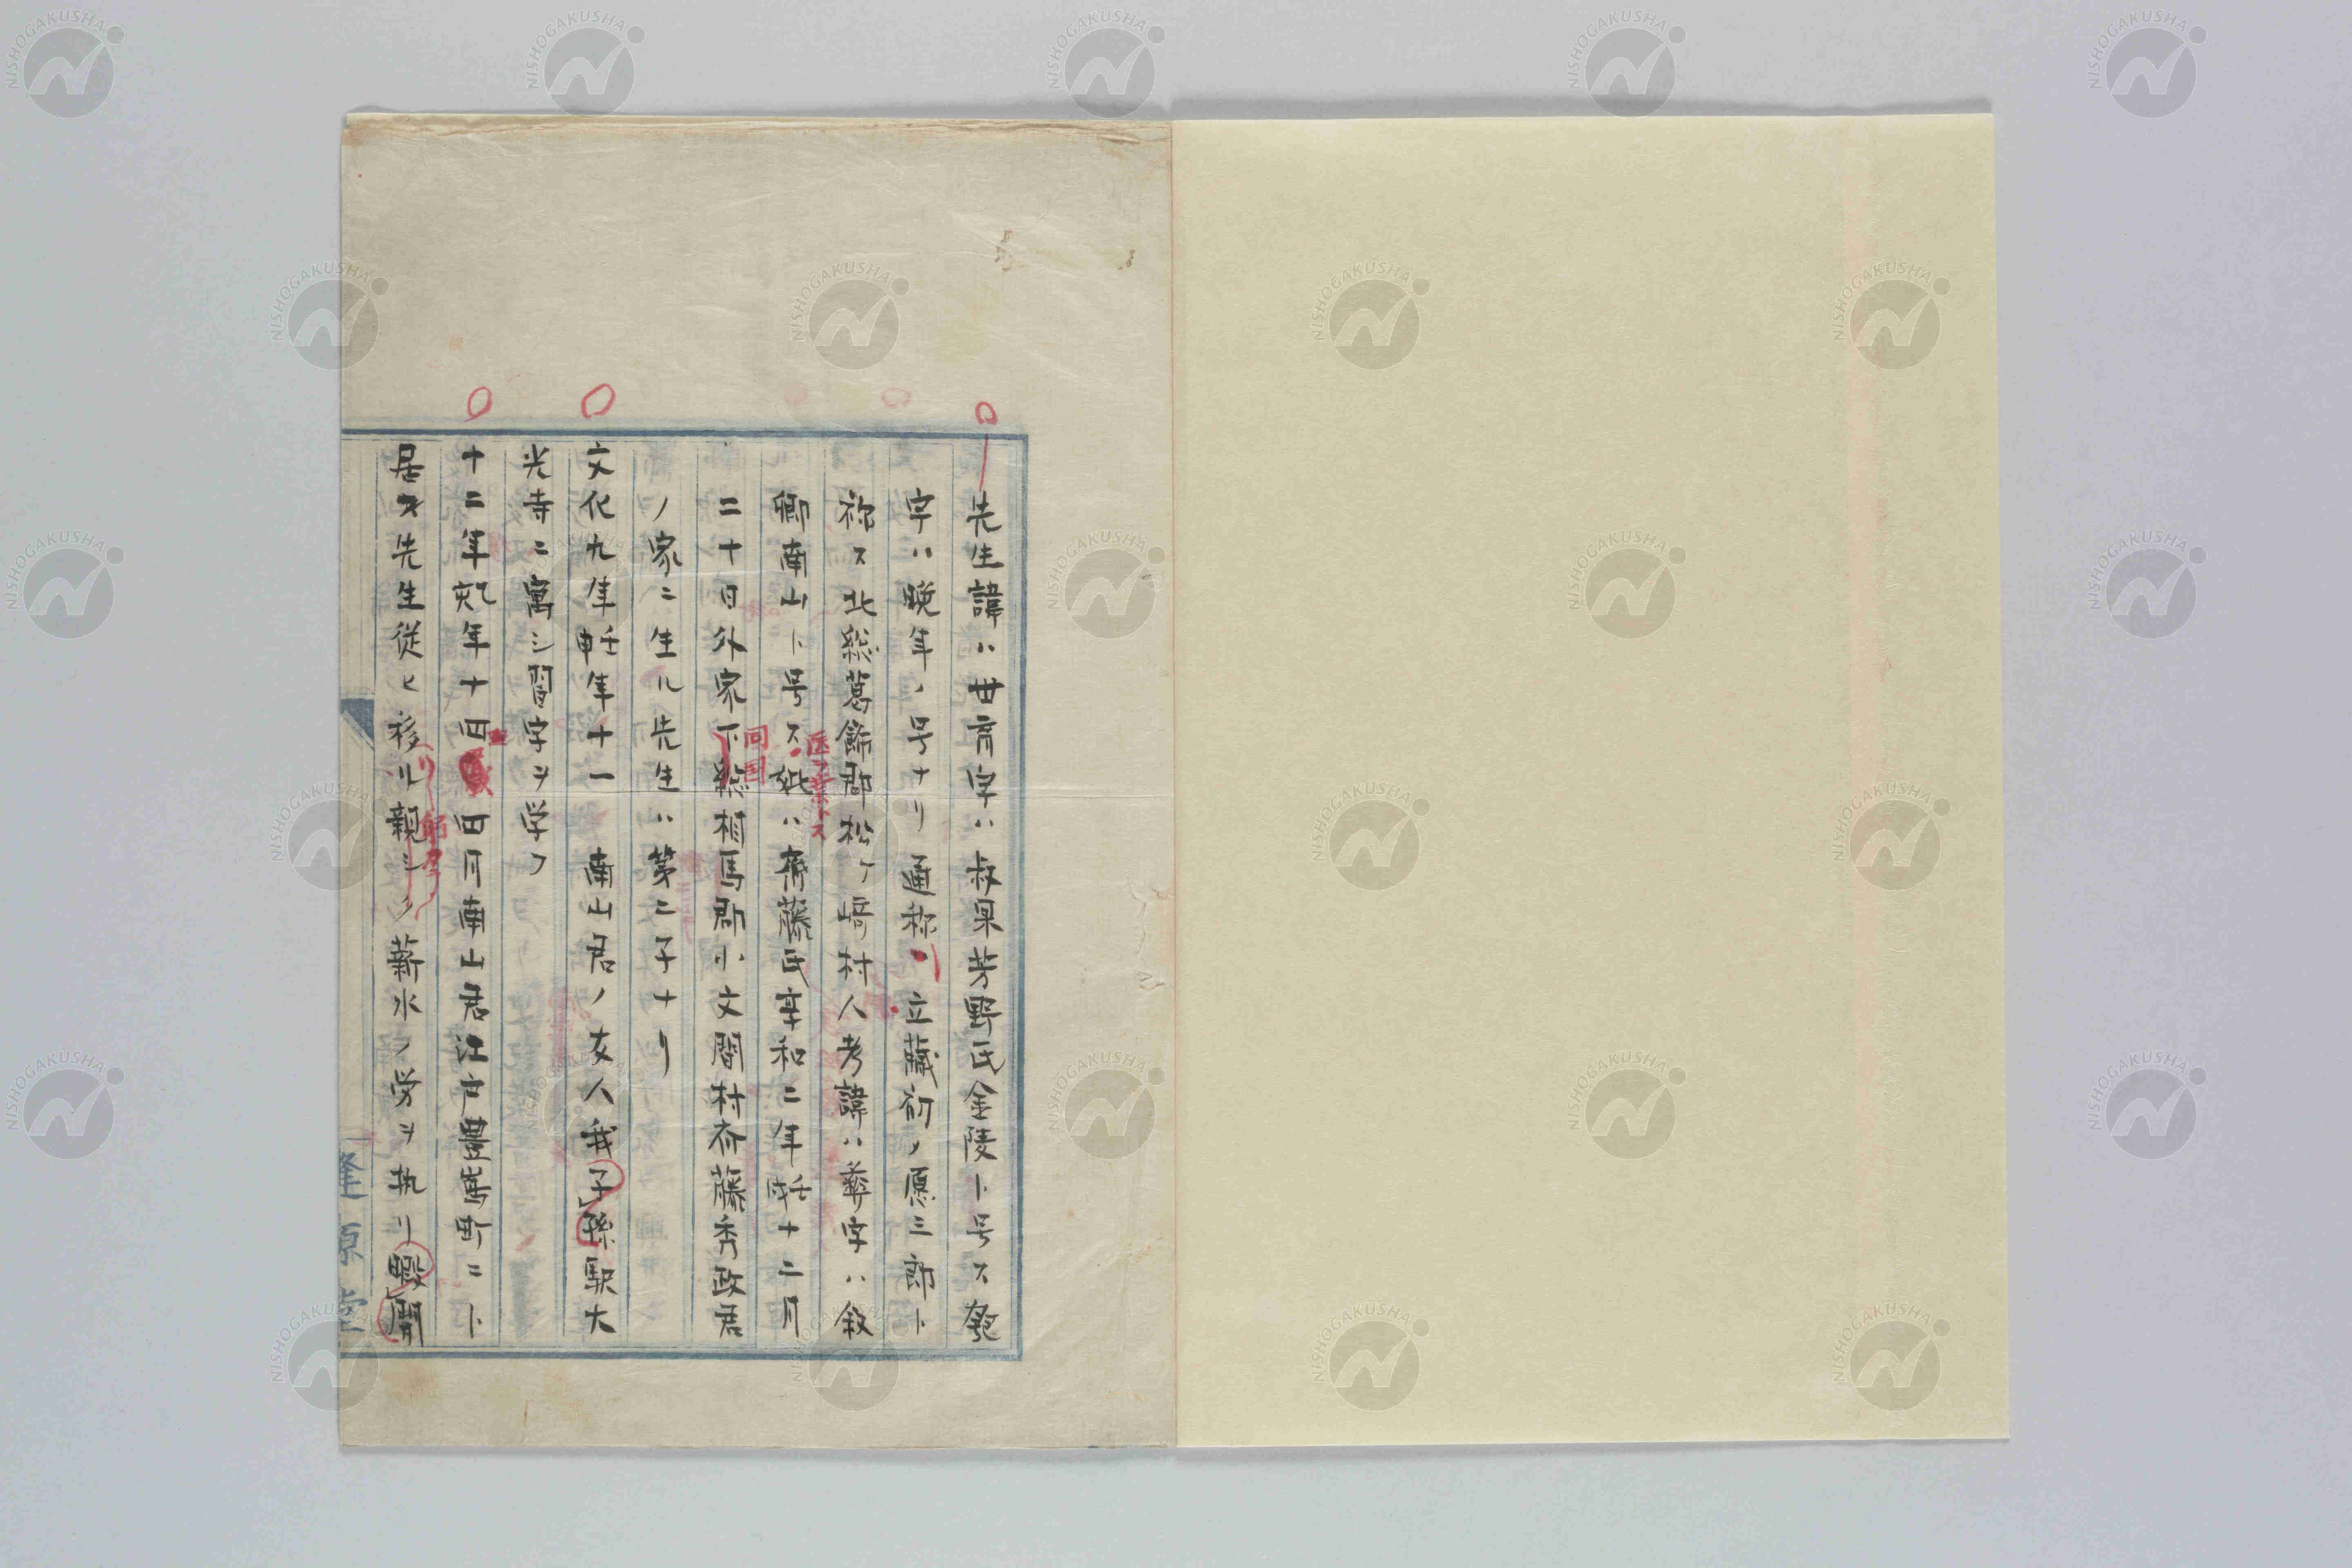 先生諱ハ世育字ハ叔果芳野氏金陵ト号ス匏
宇ハ晩年ノ号ナリ通称ハ立蔵初ノ愿三郎ト
称ス北総葛飾郡松ケ崎村人考諱ハ彜字ハ叙
医ヲ業トス
卿南山ト号ス妣ハ齊藤氏享和二年壬戌十二月
同国
二十日外家下総相馬郡小文間村斎藤秀政君
ノ家ニ生ル先生ハ第二子ナリ
文化九年壬申年十一南山君ノ友人我子孫駅大
光寺ニ寓シ習字ヲ学フ
十二年乙亥年十四四月南山君江戸豊嶌町ニト
居ス先生従ヒ移ル親シク薪水ノ労ヲ執リ暇間
逢原堂
NISHOGAKUSHA